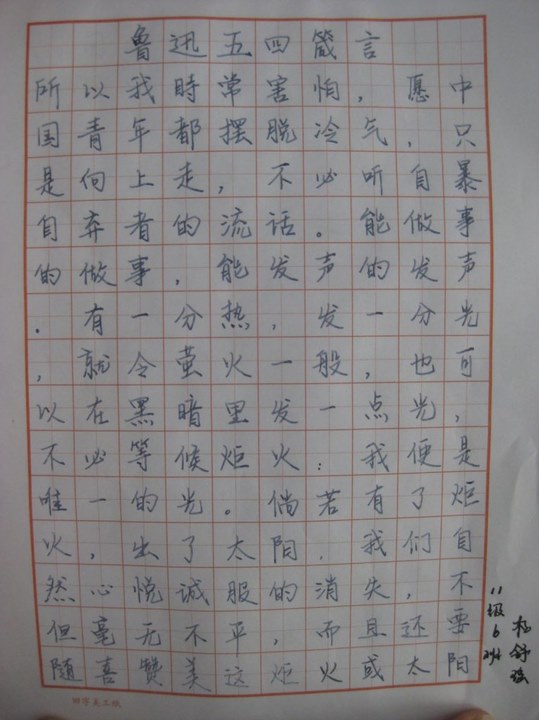 鲁迅五四箴言
所以我時常害怕，愿中
国青年都摆脱冷气，只
是向上走，不必听自暴
自弃者的流话。能做事
的做事，能发声的发声
．有一分热，发一分光
，就令萤火一般，也可
以在黑暗里发一点光，
不必等候炬火：我便是
唯一的光。倘若有了炬
火，出了太阳．我们自
然心悦诚服的消失，不
但毫无不平，而且还要
随喜赞美这炬火或太阳
11级6班